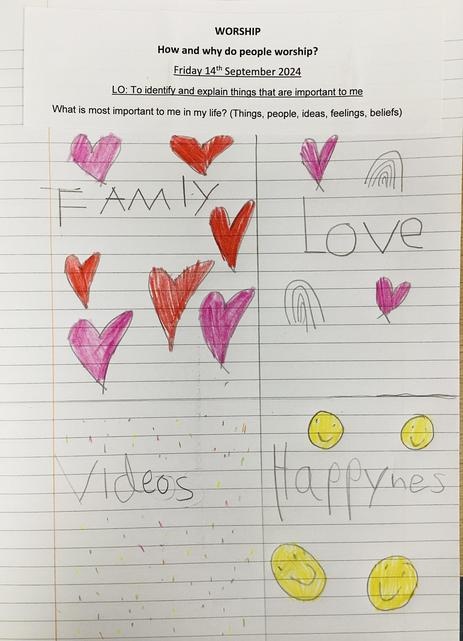 WORSHIP
How and why do people worship?
Friday 14th September 2024
LO: To identify and explain things that are important to me
What is most important to me in my life? (Things, people, ideas, feelings, beliefs)
FAMIly
Love
Videos
Happynes